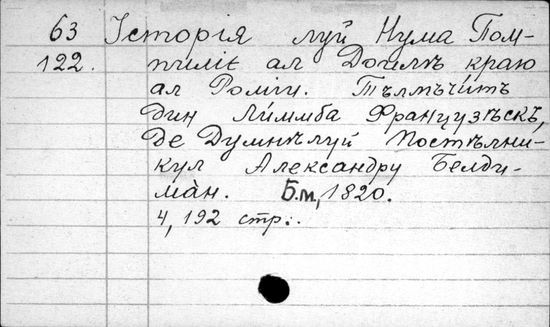 63 Історія луй Нума Пом-
122. пиліе ал Доилѣ краю
ал Роміи. Тълмъчитъ
дин Лимба Французѣскъ,
де Думнѣлуй Постѣлни-
кул Александру Белди-
ман. Б.м., 1820.
4, 192 стр.